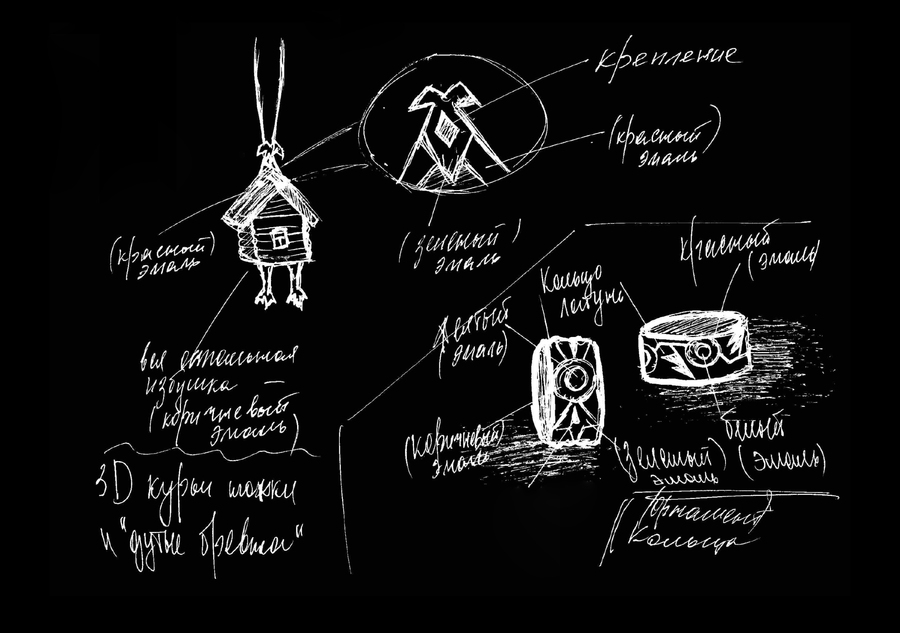 крепление
(красный)
эмаль
(красный)
эмаль
(зеленый)
эмаль
вся остальная
избушка —
(коричневый
эмаль)
3D курьи ножки
и "дутые бревна"
красный
(эмаль)
Кольцо
латунь
желтый
(эмаль)
(коричневый)
эмаль
(зеленый)
эмаль
белый
(эмаль)
Орнамент
Кольца